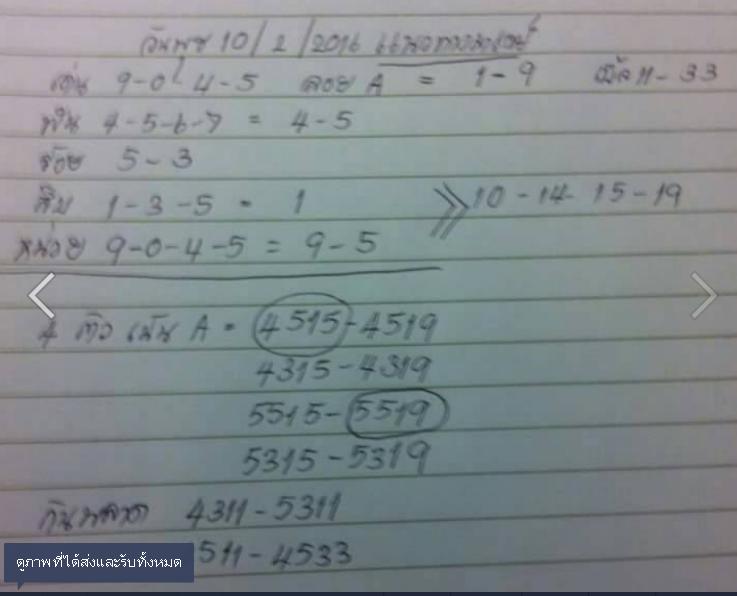 วันพุธ 10/2/2016 แนวทางมาเลย์
เด่น 9-0-4-5 ลอย A = 1-9 เบิ้ล 11-33
พัน 4-5-6-7 = 4-5
ร้อย 5-3
สิบ 1-3-5 = 1 >> 10-14-15-19
หน่วย 9-0-4-5 = 9-5
4 ตัว เน้น A = 4515-4519
4315-4319
5515-5519
5315-5319
กันพลาด 4311-5311
511-4533
ดูภาพที่ได้ส่งและรับทั้งหมด